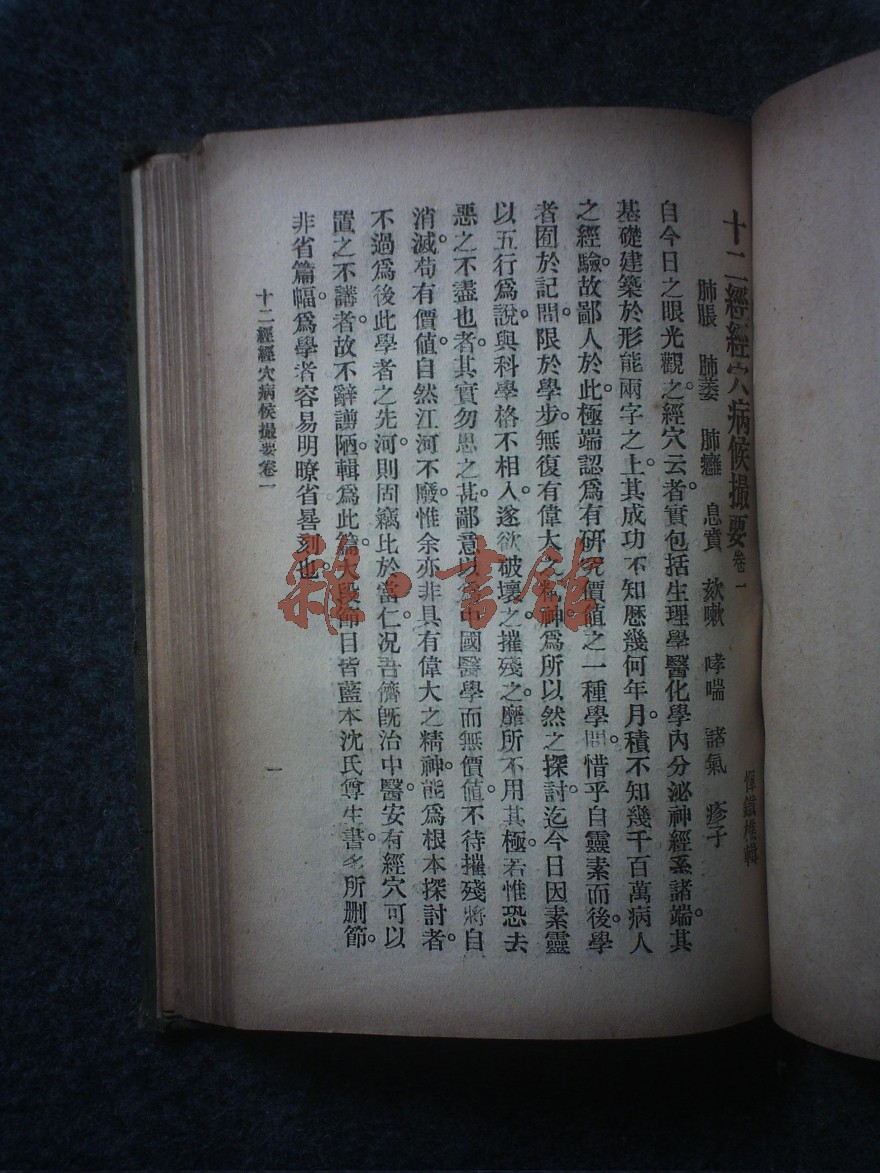 十二經經穴病候撮要卷一
惲鐵樵輯
肺脹 肺萎 肺癰 息賁 欬嗽 哮喘 諸氣 疹子
自今日之眼光觀之經穴云者實包括生理學醫化學內分泌神經系諸端。其
基礎建築於形能兩字之上。其成功不知歷幾何年月。積不知幾千百萬病人
之經驗。故鄙人於此。極端認爲有研究價値之一種學問。惜乎自靈素而後。學
者囿於記問。限於學步。無復有偉大之精神爲所以然之探討。迄今日因素靈
以五行爲說。與科學格不相入。遂欲破壞之。摧殘之。靡所不用其極。若惟恐去
惡之不盡也者。其實勿思之甚。鄙意以爲中國醫學而無價値。不待摧殘將自
消滅。苟有價値。自然江河不廢。惟余亦非具有偉大之精神。能爲根本探討者。
不過爲後此學者之先河。則固竊比於當仁。况吾儕旣治中醫。安有經穴可以
置之不講者。故不辭譾陋。輯爲此篇。大段節目皆藍本沈氏尊生書。多所删節。
非省篇幅。爲學者容易明瞭省晷刻也。
十二經經穴病候撮要卷一
一
雜·書館